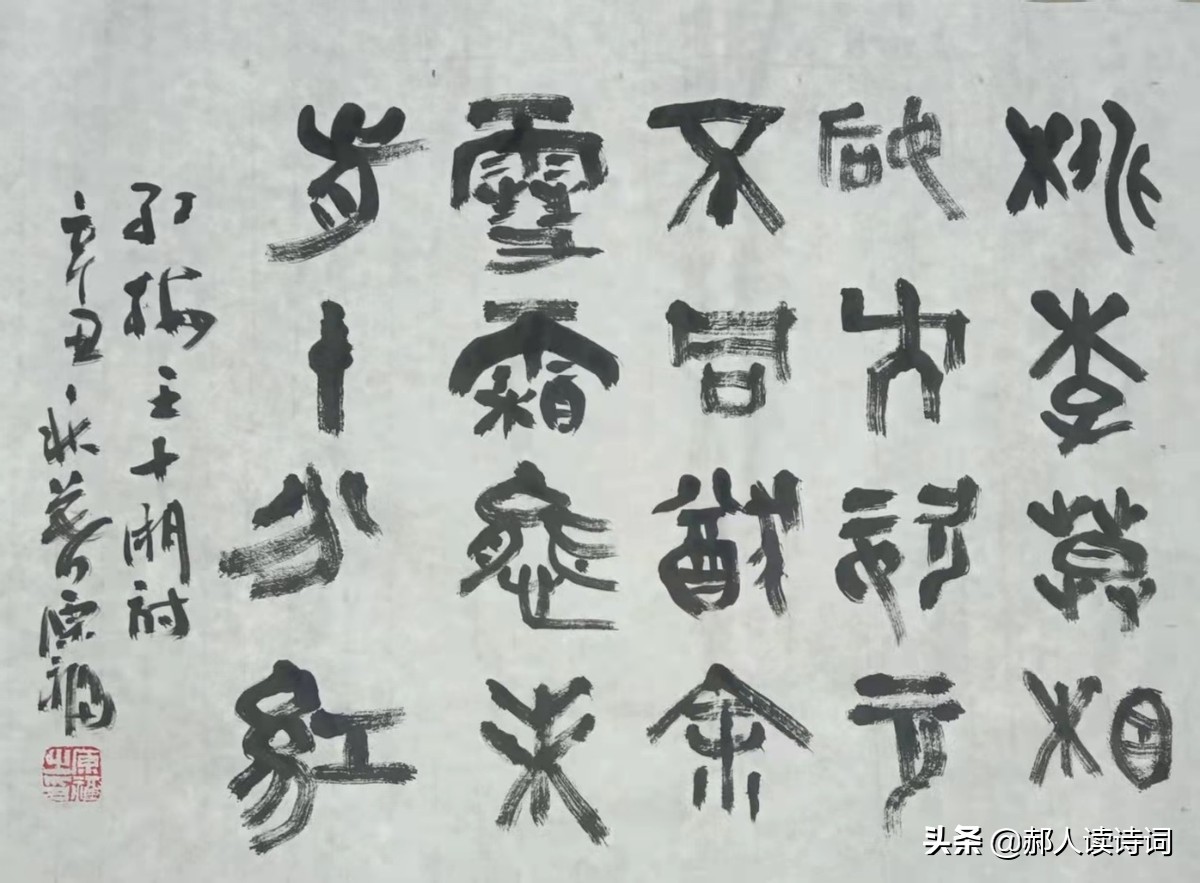 桃李莫相
妬夭姿元
不同猶余
雪霜態未
肯十分紅
紅梅王十朋詩
辛丑秋原福
头条 @郝人读诗词